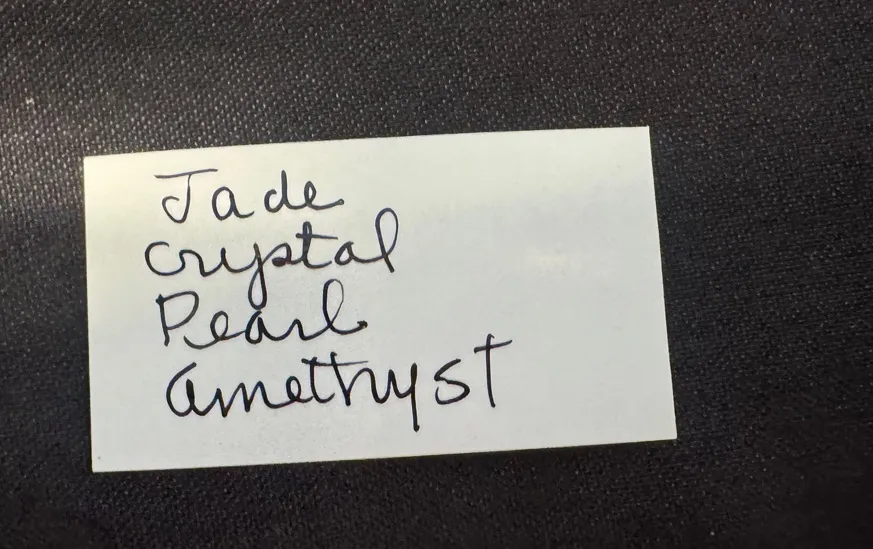 Jade
Crystal
Pearl
Amethyst